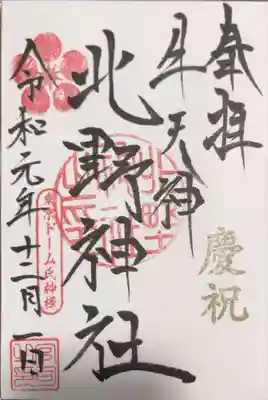 奉拝
慶祝
牛天神
北野神社
東京ドーム氏神様
令和元年十二月一日